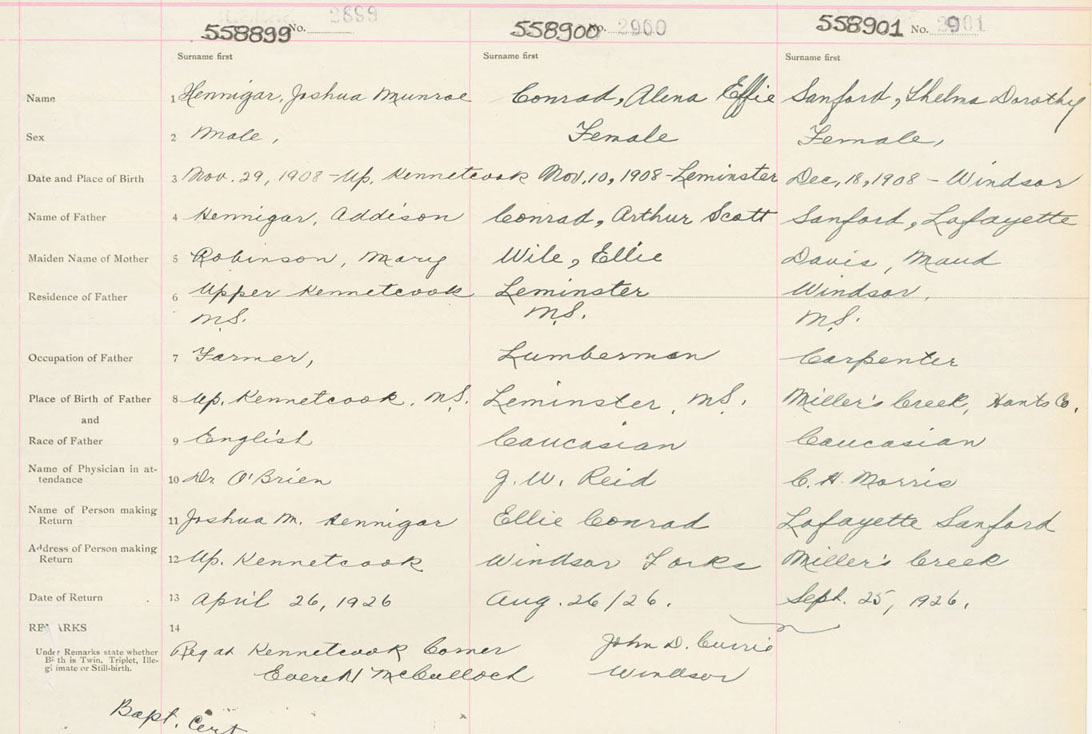 558899 No. 2899 558900 No. 2900 558901 No. 2901
Surname first Surname first Surname first
Name 1 Hennigar, Joshua Munroe Conrad, Alena Effie Sanford, Thelma Dorothy
Sex 2 Male, Female Female,
Date and Place of Birth 3 Nov. 29, 1908 - Up. Kennetcook Nov. 10, 1908 - Leminster Dec. 18, 1908 - Windsor
Name of Father 4 Hennigar, Addison Conrad, Arthur Scott Sanford, Lafayette
Maiden Name of Mother 5 Robinson, Mary Wile, Ellie Davis, Maud
Residence of Father 6 Upper Kennetcook Leminster Windsor,
N.S. N.S. N.S.
Occupation of Father 7 Farmer, Lumberman Carpenter
Place of Birth of Father 8 Up. Kennetcook, N.S. Leminster, N.S. Miller's Creek, Hants Co.
and
Race of Father 9 English Caucasian Caucasian
Name of Physician in at-
tendance 10 Dr O'Brien J. W. Reid C. H. Morris
Name of Person making
Return 11 Joshua M. Hennigar Ellie Conrad Lafayette Sanford
Address of Person making
Return 12 Up. Kennetcook Windsor Forks Miller's Creek
Date of Return 13 April 26, 1926 Aug. 26/26. Sept. 25, 1926.
REMARKS 14
Under Remarks state whether
Birth is Twin, Triplet, Ille-
gitimate or Still-birth.
Reg at Kennetcook Corner John D. Currie
Everett McCulloch Windsor
Bapt. Cert